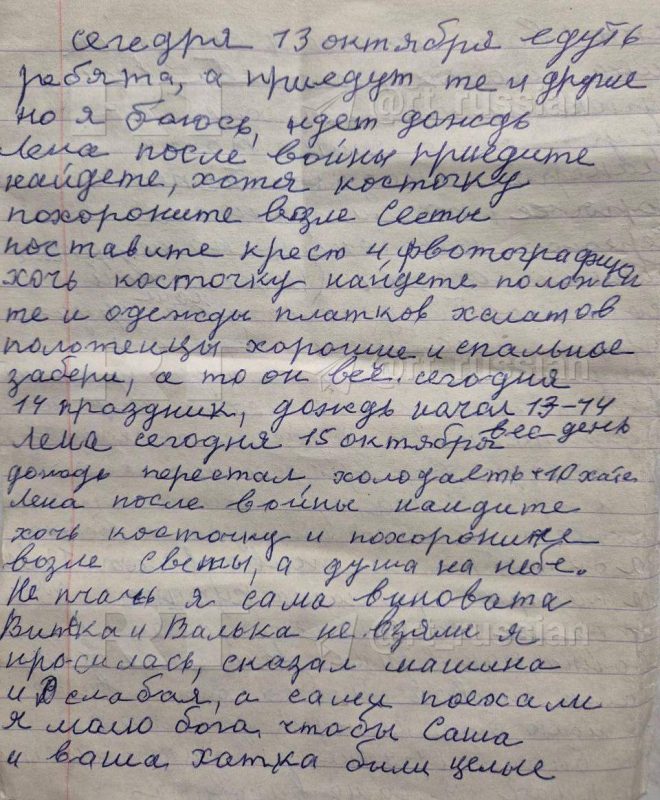 сегедря 13 октября едуть
ребята, а приедут те и другие
но я боюсь, идет дождь
Лена после войны приедите
найдете, хотя косточку
похороните возле Светы
поставите крест и фвотографию
хочь косточку найдете положи
те и одежды платков халатов
положенцы хорошие и спальное
забери, а то он все. сегодня
14 праздник, дождь начал 13-14
Лена сегодня 15 октября вес день
дождь перестал, холодаеть +10 хате
Лена после войны наидите
хочь косточку и похорониче
возле Светы, а душа на небе.
Не плачь я сама виновата
Витька и Валька не взяли я
просилась, сказал машина
и слабая, а сами поехали
я молю бога, чтобы Саша
и ваша хатка били целые
@rt_russian